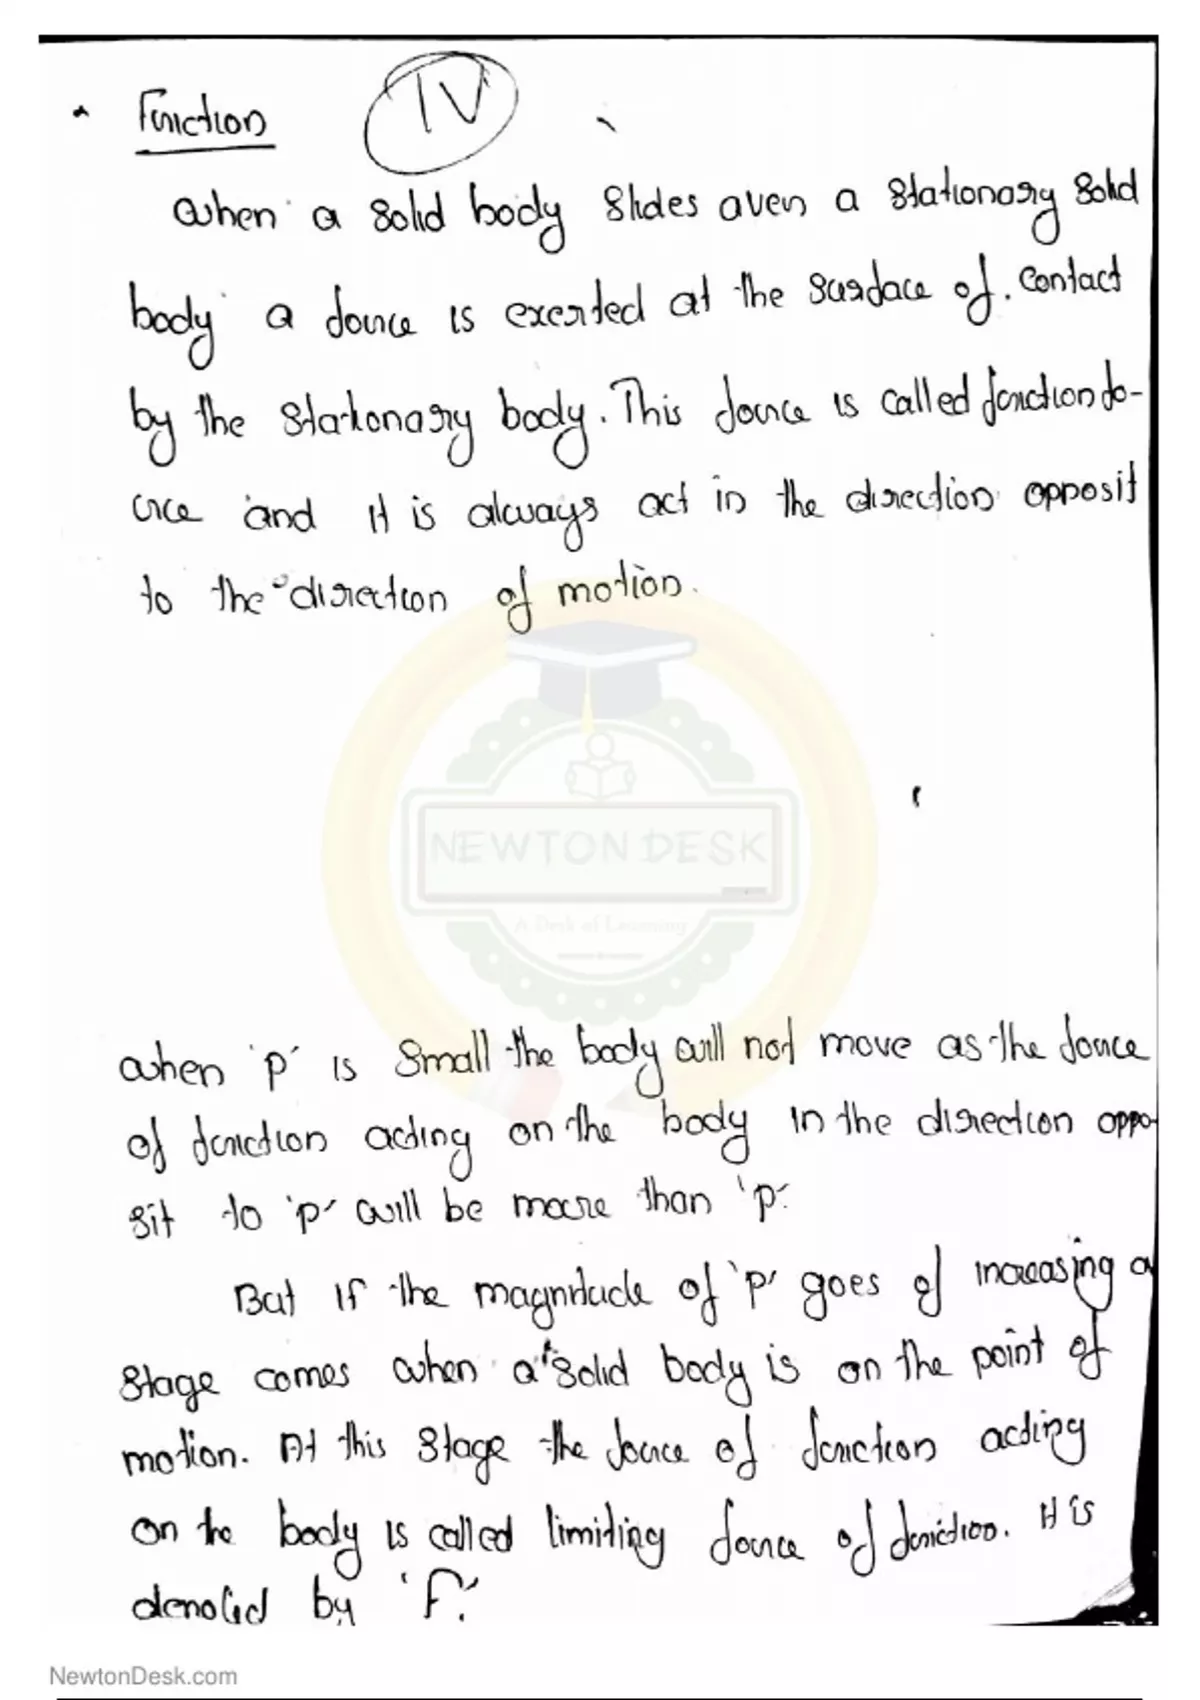 Friction
IV
when a solid body slides over a stationary solid
body a force is exerted at the surface of contact
by the stationary body. This force is called friction fo-
rce and it is always act in the direction opposit
to the direction of motion.
NEWTON DESK
A Desk of Learning
when 'p' is small the body will not move as the force
of friction acting on the body in the direction oppo-
sit to 'p' will be more than 'p'.
But if the magnitude of 'p' goes of increasing a
stage comes when a solid body is on the point of
motion. At this stage the force of friction acting
on the body is called limiting force of friction. It is
denoted by 'F'.
NewtonDesk.com